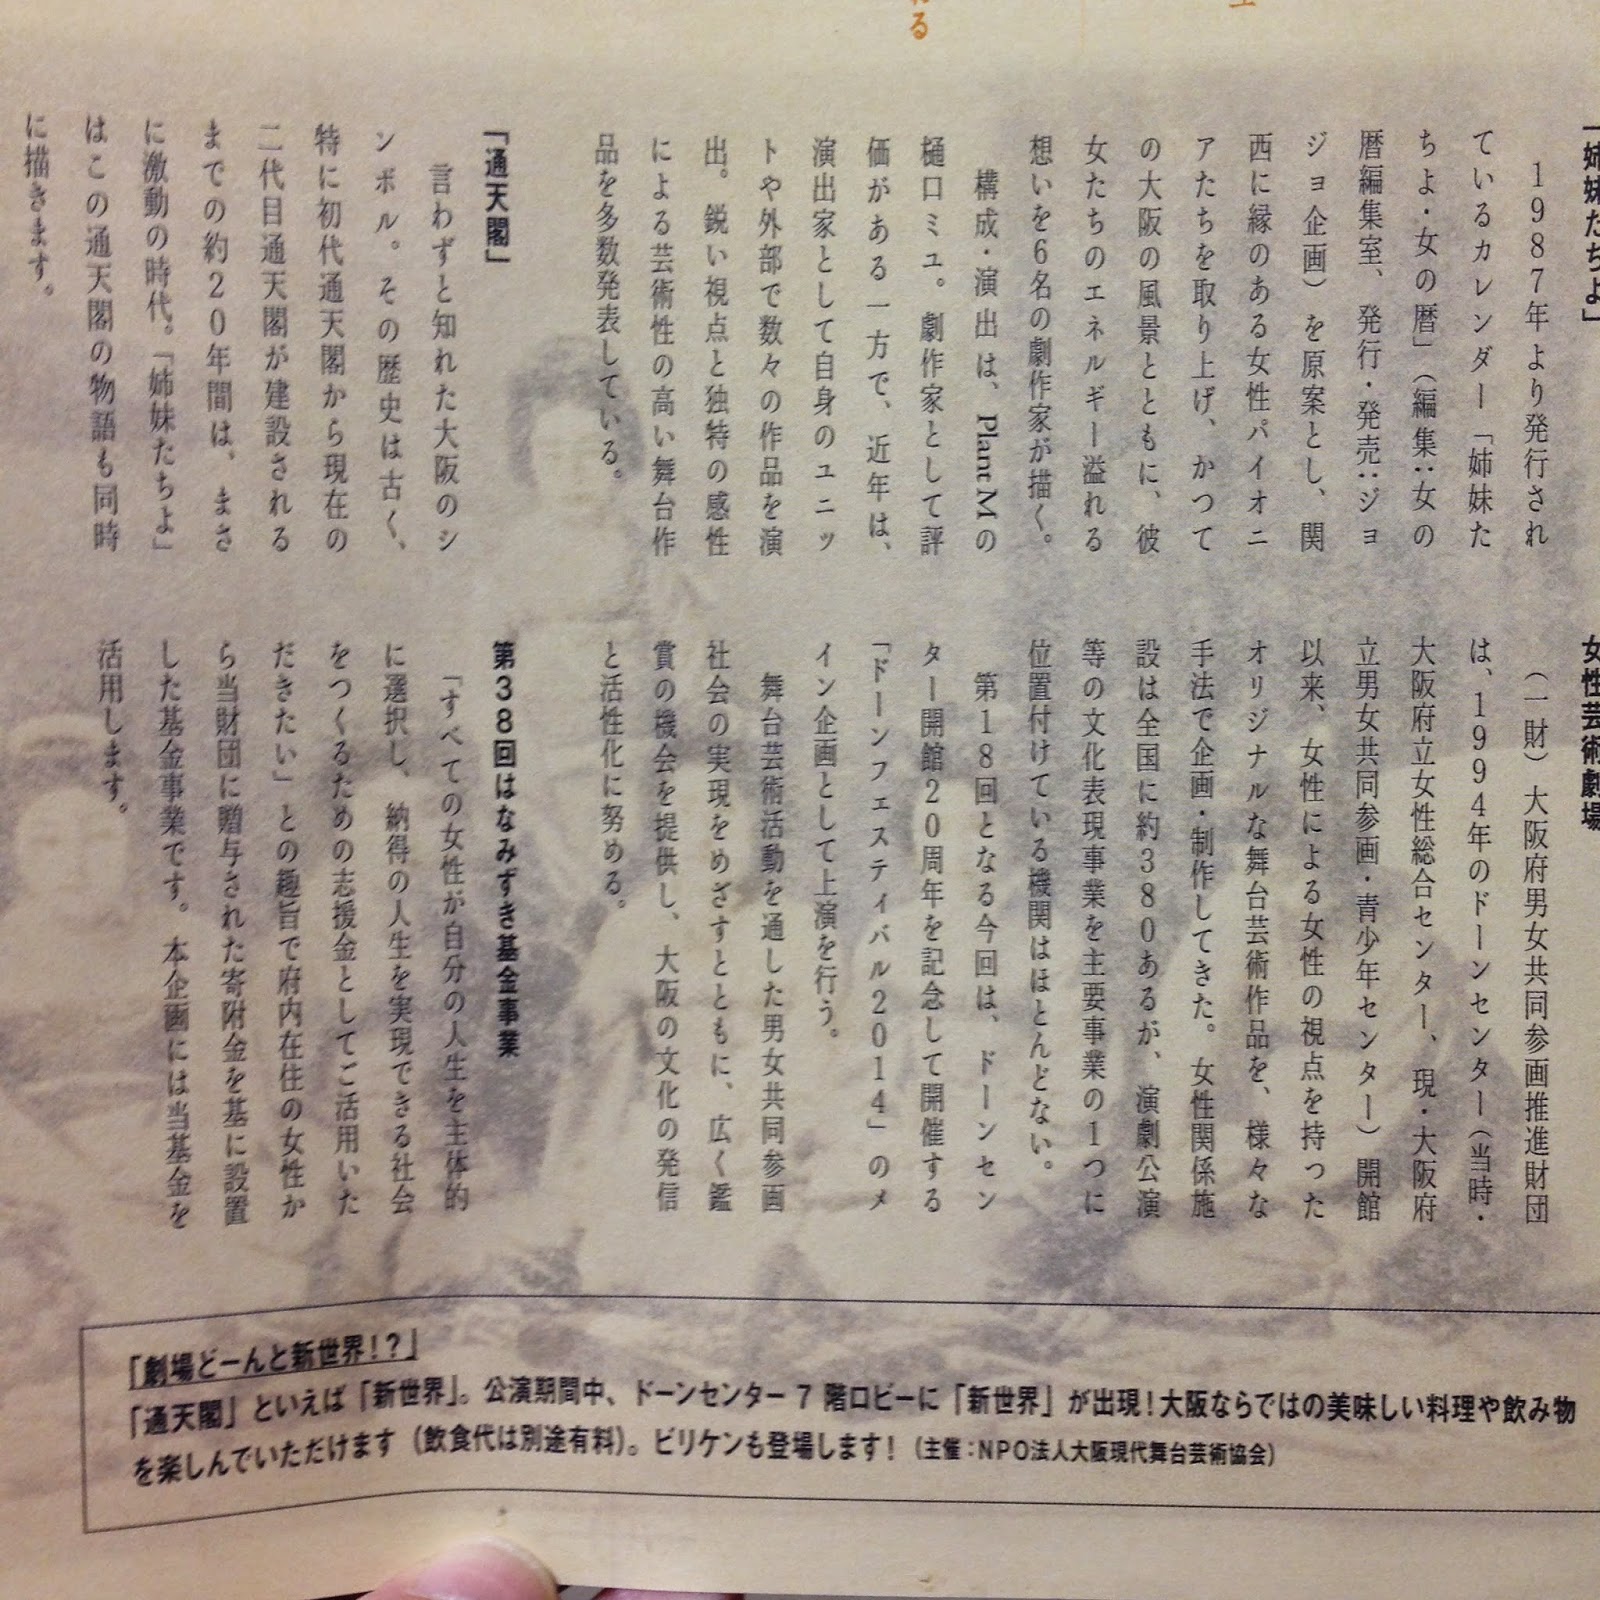 「姉妹たちよ」
1987年より発行され
ているカレンダー「姉妹た
ちよ・女の暦」（編集：女の
暦編集室、発行・発売：ジョ
ジョ企画）を原案とし、関
西に縁のある女性パイオニ
アたちを取り上げ、かつて
の大阪の風景とともに、彼
女たちのエネルギー溢れる
想いを6名の劇作家が描く。
構成・演出は、Plant Mの
樋口ミユ。劇作家として評
価がある一方で、近年は、
演出家として自身のユニッ
トや外部で数々の作品を演
出。鋭い視点と独特の感性
による芸術性の高い舞台作
品を多数発表している。
「通天閣」
言わずと知れた大阪のシ
ンボル。その歴史は古く、
特に初代通天閣から現在の
二代目通天閣が建設される
までの約20年間は、まさ
に激動の時代。「姉妹たちよ」
はこの通天閣の物語も同時
に描きます。
女性芸術劇場
（一財）大阪府男女共同参画推進財団
は、1994年のドーンセンター（当時・
大阪府立女性総合センター、現・大阪府
立男女共同参画・青少年センター）開館
以来、女性による女性の視点を持った
オリジナルな舞台芸術作品を、様々な
手法で企画・制作してきた。女性関係施
設は全国に約380あるが、演劇公演
等の文化表現事業を主要事業の1つに
位置付けている機関はほとんどない。
第18回となる今回は、ドーンセン
ター開館20周年を記念して開催する
「ドーンフェスティバル2014」のメ
イン企画として上演を行う。
舞台芸術活動を通した男女共同参画
社会の実現をめざすとともに、広く鑑
賞の機会を提供し、大阪の文化の発信
と活性化に努める。
第38回はなみずき基金事業
「すべての女性が自分の人生を主体的
に選択し、納得の人生を実現できる社会
をつくるための志援金としてご活用いた
だきたい」との趣旨で府内在住の女性か
ら当財団に贈与された寄附金を基に設置
した基金事業です。本企画には当基金を
活用します。
「劇場どーんと新世界！？」
「通天閣」といえば「新世界」。公演期間中、ドーンセンター7階ロビーに「新世界」が出現！大阪ならではの美味しい料理や飲み物
を楽しんでいただけます（飲食代は別途有料）。ビリケンも登場します！（主催：NPO法人大阪現代舞台芸術協会）